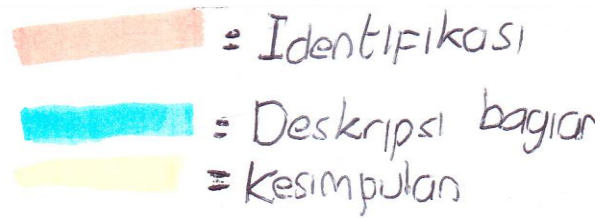 = Identifikasi
= Deskripsi bagian
= Kesimpulan